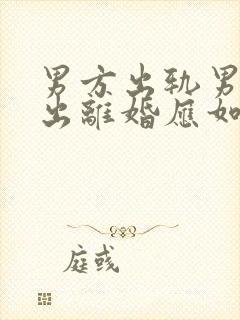 男方出轨男
出離婚應如
庭彧